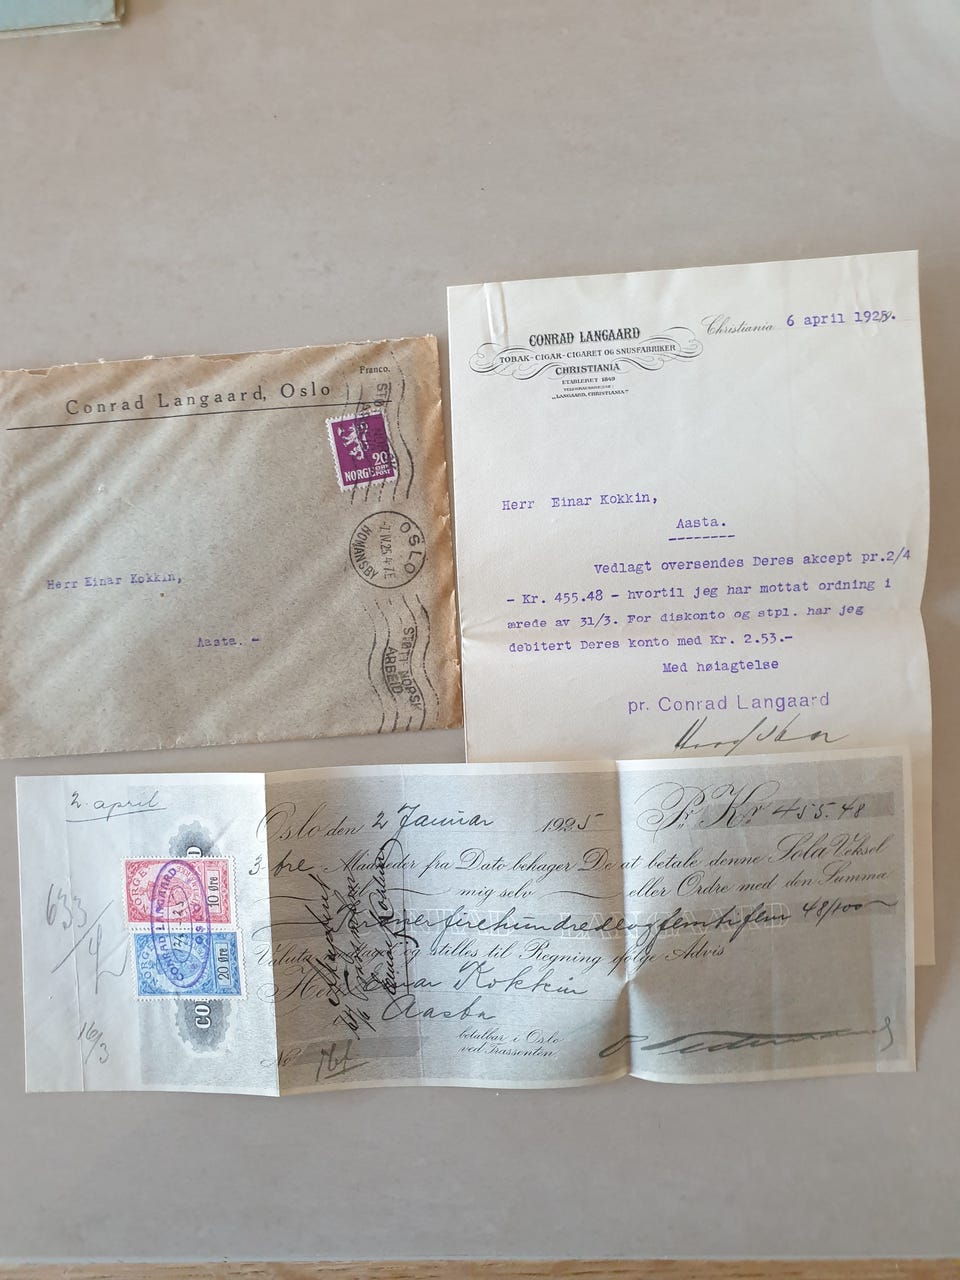 Franco.
Conrad Langaard, Oslo
20
NORGE
POST
OSLO
HOMANSBY
STØTT NORSK
ARBEID
Herr Einar Kokkin,
Aasta. -
CONRAD LANGAARD
TOBAK-CIGAR-CIGARET OG SNUSFABRIKER
CHRISTIANIA
ETABLERET 1849
„LANGAARD, CHRISTIANIA"
Christiania 6 april 1925.
Herr Einar Kokkin,
Aasta.
Vedlagt oversendes Deres akcept pr.2/4
- Kr. 455.48 - hvortil jeg har mottat ordning i
ærede av 31/3. For diskonto og stpl. har jeg
debitert Deres konto med Kr. 2.53.-
Med høiagtelse
pr. Conrad Langaard
2. april
633
16/3
NORGE
10 Øre
NORGE
20 Øre
CONRAD LANGAARD
OSLO
Oslo den 2 Januar 1925
Pr. Kr. 455.48
3-tre Måneder fra Dato behager De at betale denne Sola Veksel
mig selv eller Ordre med den Summa
Kroner firehundredeogfemtifem 48/100
LANGAARD
Valuta og stilles til Regning ifølge Advis
Herr Einar Kokkin
Aasta
betalbar i Oslo
ved Trassenten.
No 764
Einar Kokkin